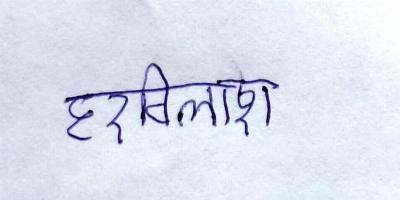 हरविलाश